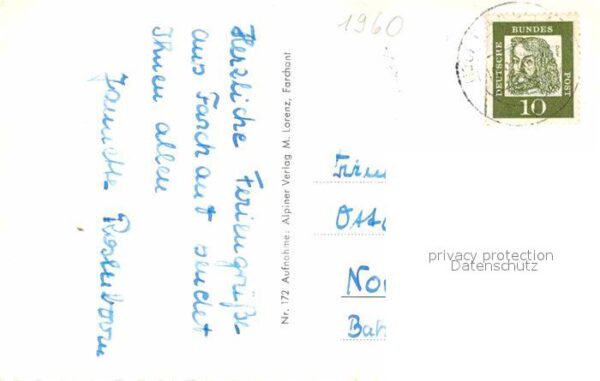 Herzliche Feriengrüße
aus Farchant sendet
Ihnen allen
Nr. 172 Aufnahme: Alpiner Verlag M. Lorenz, Farchant
1960
DEUTSCHE
BUNDES
POST
10
No
Bah
privacy protection
Datenschutz